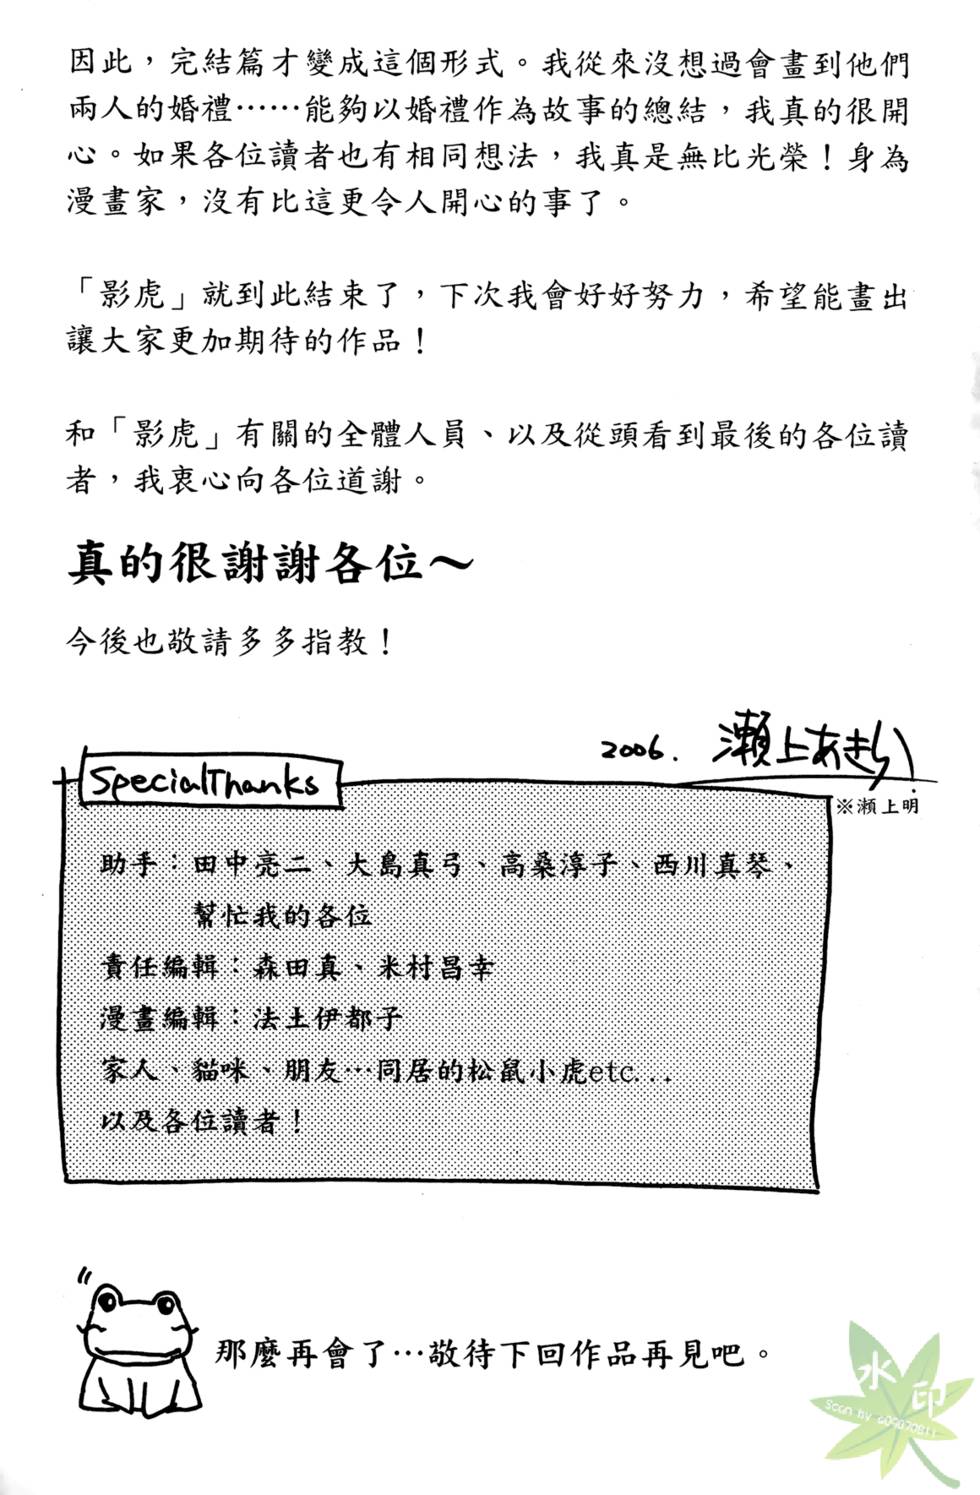 因此，完結篇才變成這個形式。我從來沒想過會畫到他們
兩人的婚禮……能夠以婚禮作為故事的總結，我真的很開
心。如果各位讀者也有相同想法，我真是無比光榮！身為
漫畫家，沒有比這更令人開心的事了。
「影虎」就到此結束了，下次我會好好努力，希望能畫出
讓大家更加期待的作品！
和「影虎」有關的全體人員、以及從頭看到最後的各位讀
者，我衷心向各位道謝。
真的很謝謝各位～
今後也敬請多多指教！
2006. 瀬上あきら！
※瀨上明
SpecialThanks
助手：田中亮二、大島真弓、高桑淳子、西川真琴、
幫忙我的各位
責任編輯：森田真、米村昌幸
漫畫編輯：法土伊都子
家人、貓咪、朋友…同居的松鼠小虎etc...
以及各位讀者！
那麼再會了…敬待下回作品再見吧。
水印
Scan by 609890811